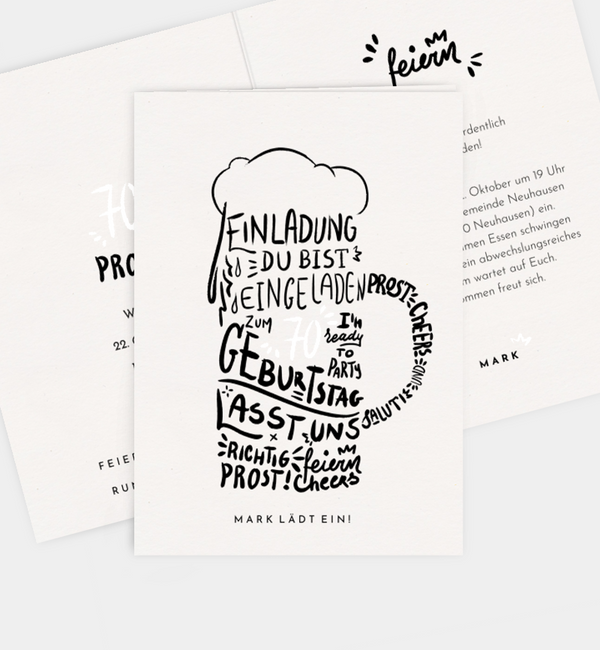 EINLADUNG
DU BIST
EINGELADEN
ZUM 70
GEBURTSTAG
I'm
ready
TO
PARTY
LASST UNS
RICHTIG feiern
PROST! Cheers
PROST CHEERS UND SALUT!
MARK LÄDT EIN!
70
22.
feiern
den!
Oktober um 19 Uhr
Neuhausen) ein.
Essen schwingen
ein abwechslungsreiches
wartet auf Euch.
freut sich.
MARK